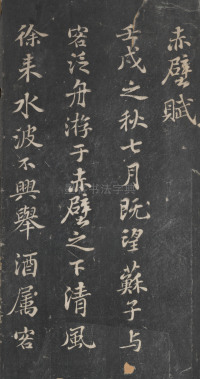 赤壁賦
壬戌之秋七月既望蘇子与
客泛舟游于赤壁之下清風
徐来水波不興舉酒属客